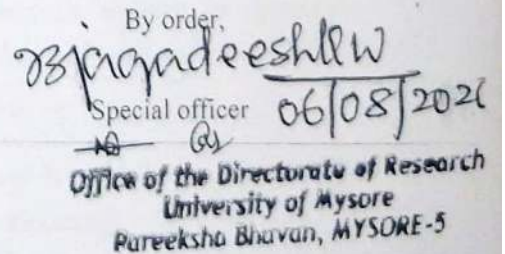 By order,
Special officer 06/08/202
Office of the Directorate of Research
University of Mysore
Pareeksha Bhavan, MYSORE-5